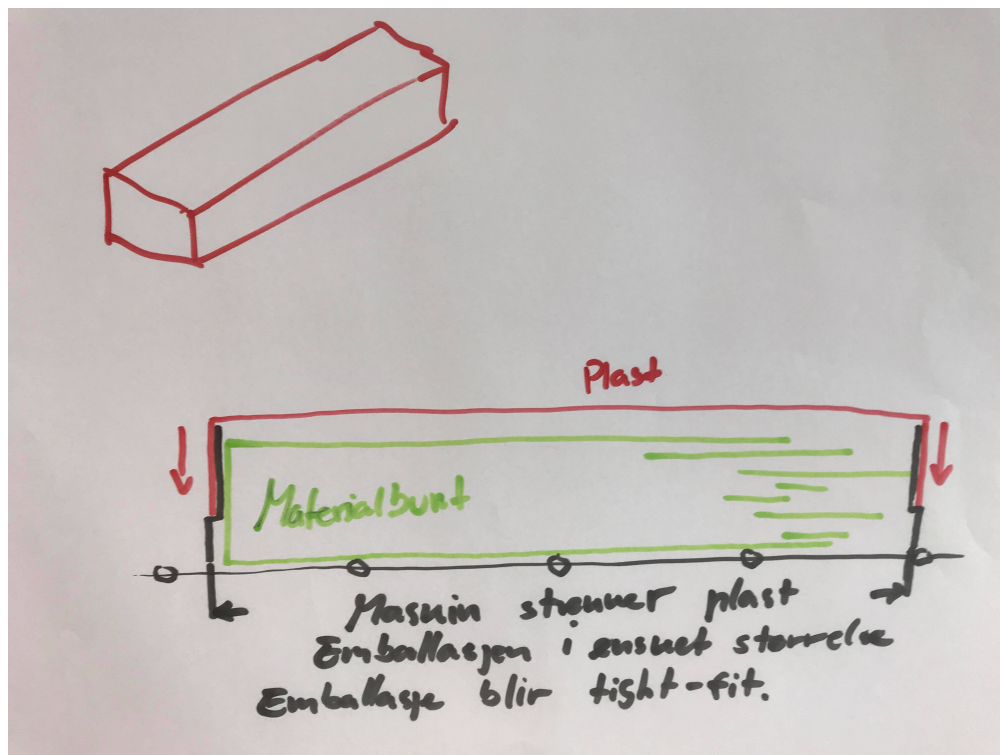 Plast
Materialbunt
Maskin strenner plast
Emballasjen i ønsket størrelse
Emballasje blir tight-fit.